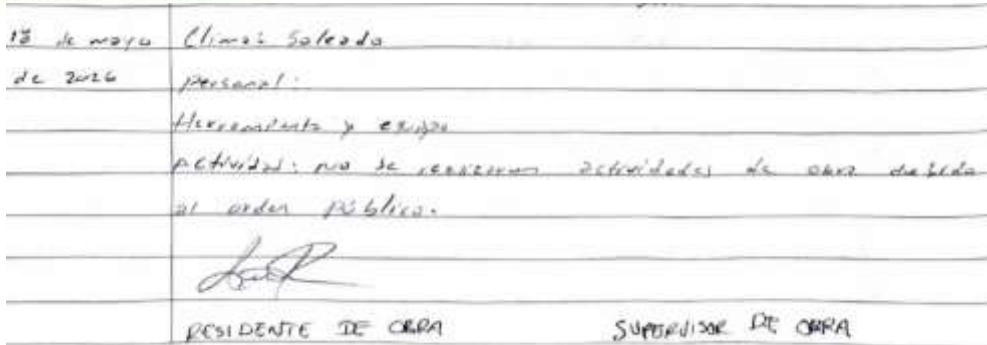 de mayo Clima: Soleado
de 2026 Personal:
Herramienta y equipo
Actividad: no se realizaron actividades de obra debido
al orden público.
RESIDENTE DE OBRA SUPERVISOR DE OBRA